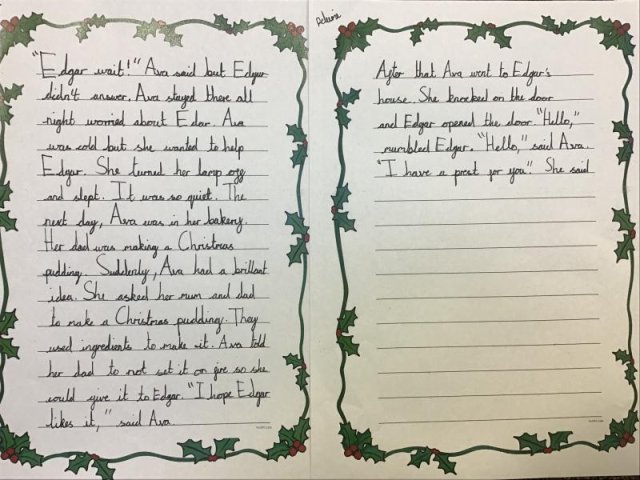 "Edgar wait!" Ava said but Edgar
didn't answer. Ava stayed there all
night worried about Edar. Ava
was cold but she wanted to help
Edgar. She turned her lamp off
and slept. It was so quiet. The
next day, Ava was in her bakery.
Her dad was making a Christmas
pudding. Suddenly, Ava had a brillant
idea. She asked her mum and dad
to make a Christmas pudding. They
used ingredients to make it. Ava told
her dad to not set it on fire so she
would give it to Edgar. "I hope Edgar
likes it," said Ava
After that Ava went to Edgar's
house. She knocked on the door
and Edgar opened the door. "Hello,"
mumbled Edgar. "Hello," said Ava.
"I have a prest for you". She said